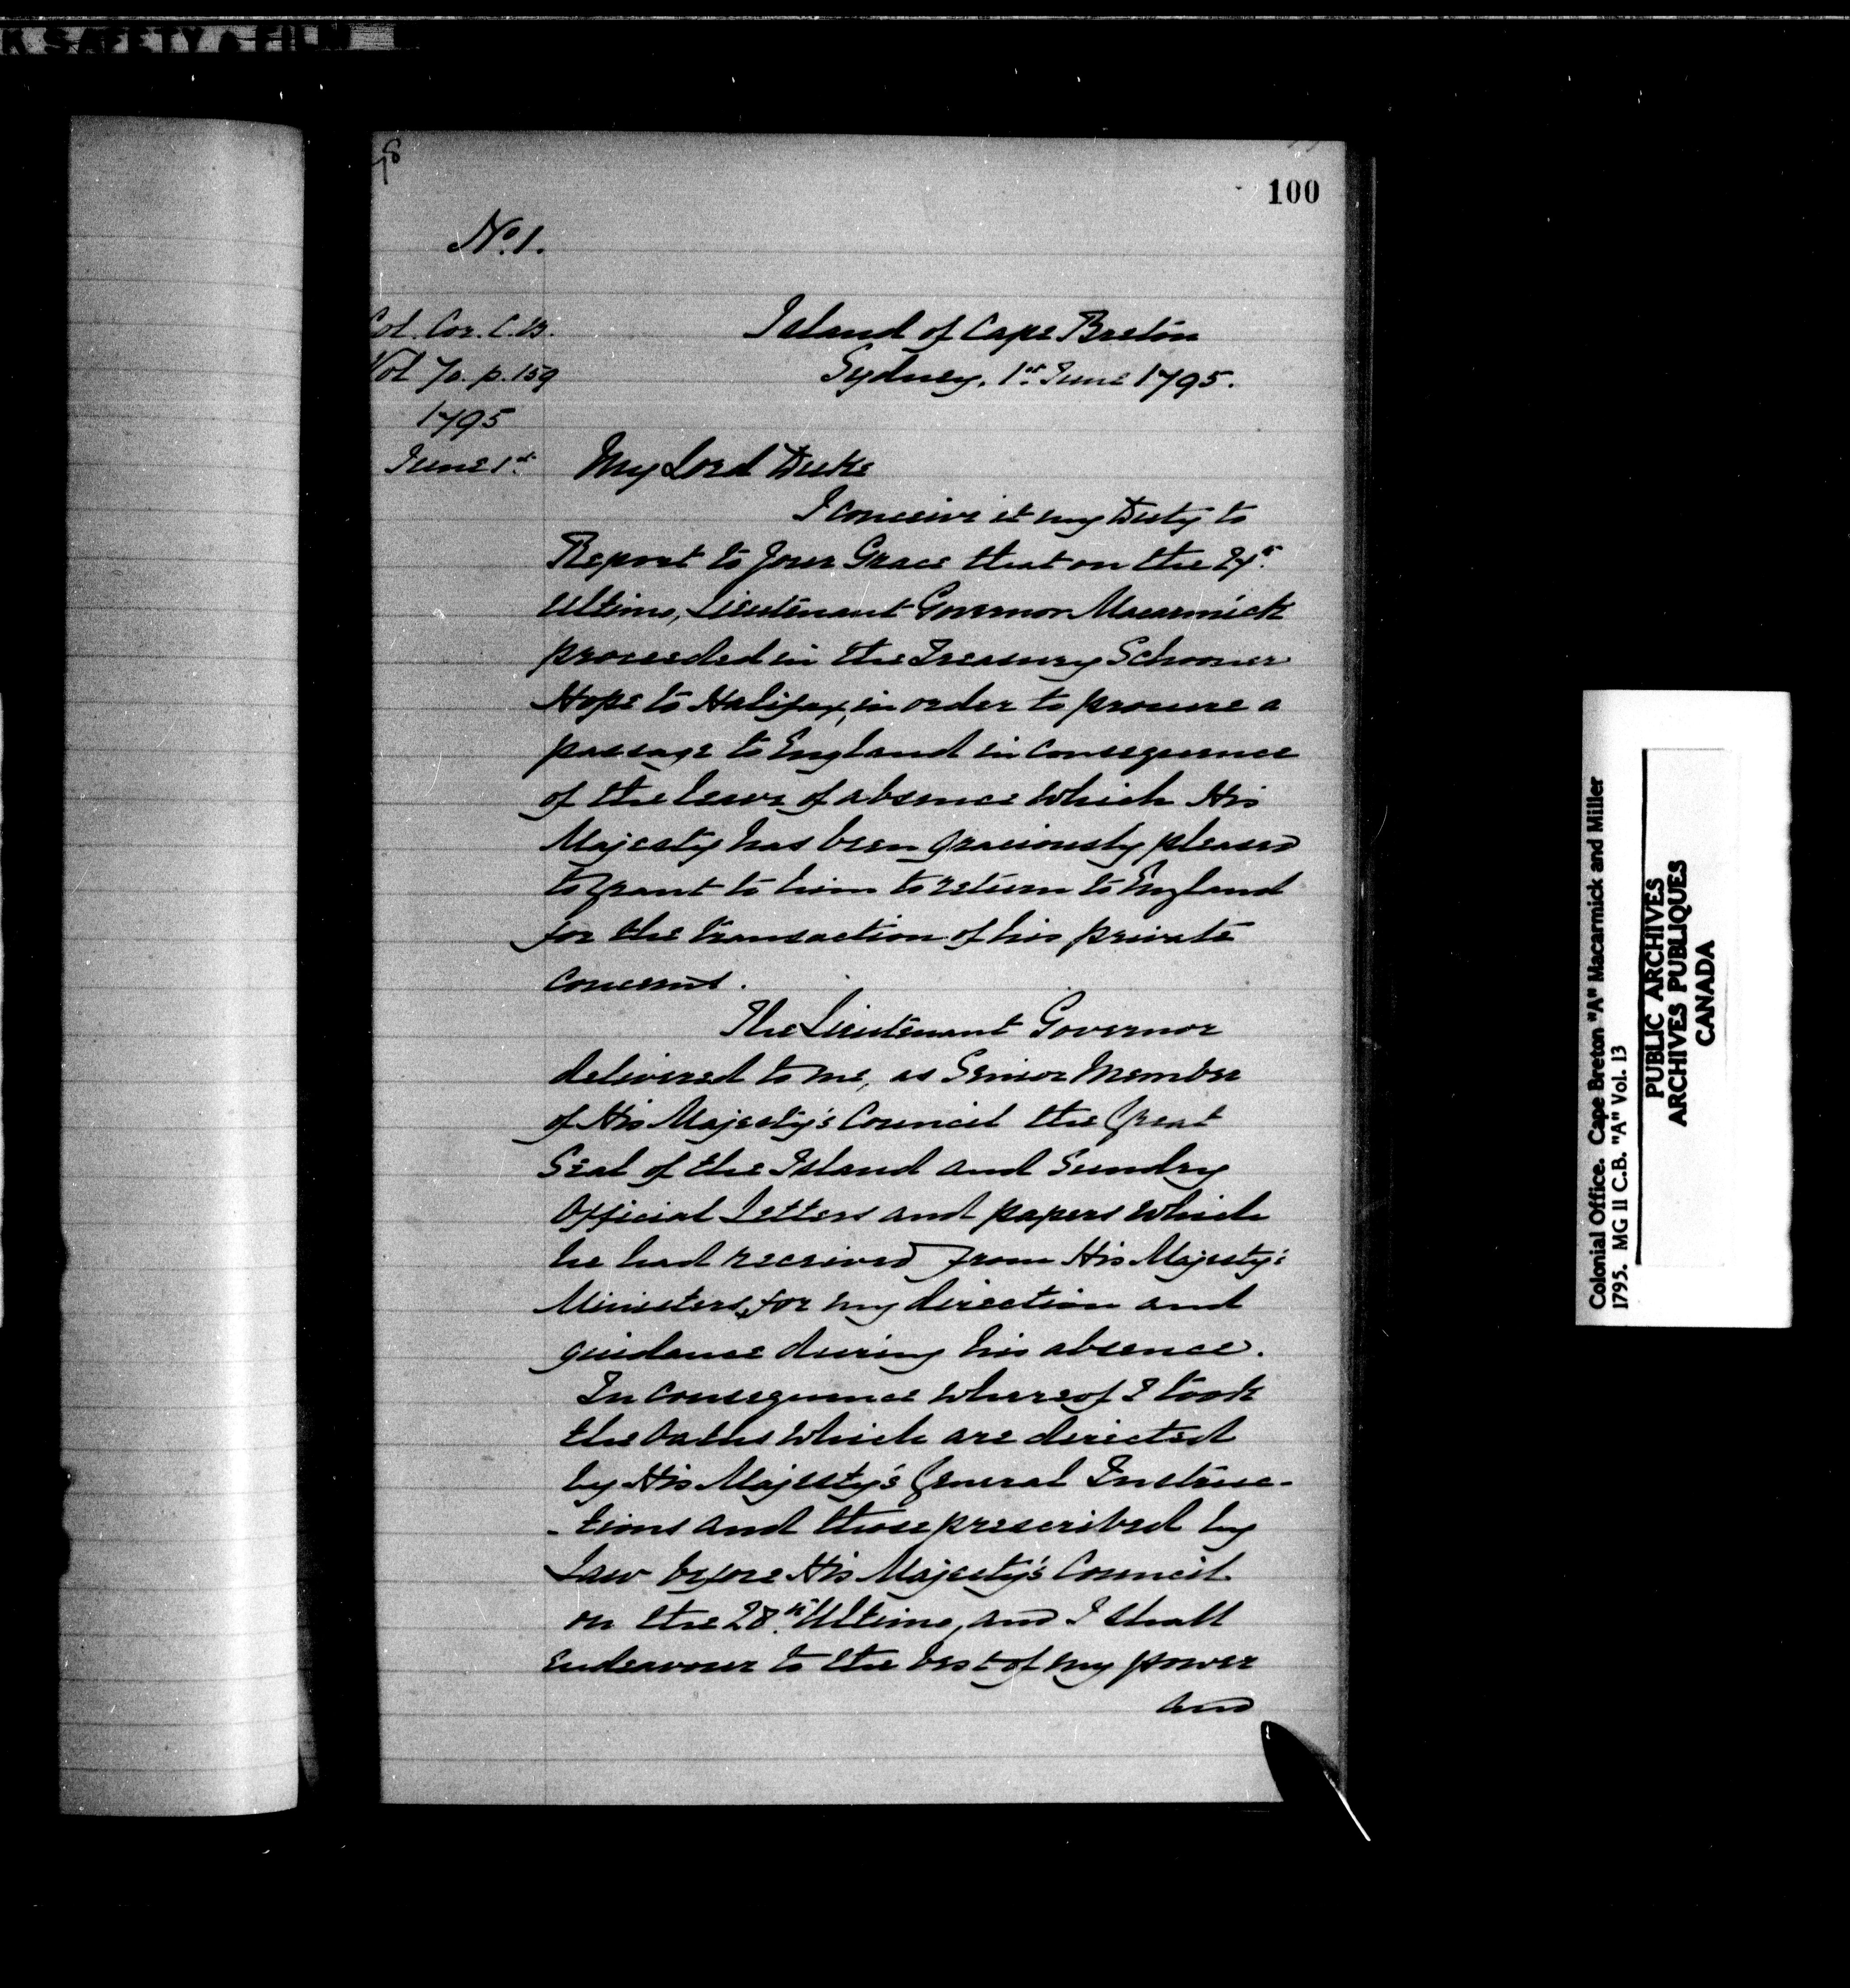 K SAFETY FILM
100
No. 1.
Col. Cor. C.B.
Vol 70. p. 159
1795
June 1st
Island of Cape Breton
Sydney. 1st June 1795.
My Lord Duke
I conceive it my Duty to
Report to Your Grace that on the
Ultimo, Lieutenant Governor Macarmick
proceeded in the Treasury Schooner
Hope to Halifax, in order to procure a
passage to England in consequence
of the leave of absence which His
Majesty has been graciously pleased
to grant to him to return to England
for the transaction of his private
concerns.
The Lieutenant Governor
delivered to me, as Senior Member
of His Majesty's Council the Great
Seal of the Island and Sundry
Official Letters and papers which
he had received from His Majesty's
Ministers, for my direction and
guidance during his absence.
In consequence whereof I took
the Oaths which are directed
by His Majesty's General Instruc-
-tions and those prescribed by
Law before His Majesty's Council
on the 28th Ultimo, and I shall
endeavour to the best of my power
and
Colonial Office. Cape Breton "A" Macarmick and Miller
1795. MG 11 C.B. "A" Vol. 13
PUBLIC ARCHIVES
ARCHIVES PUBLIQUES
CANADA